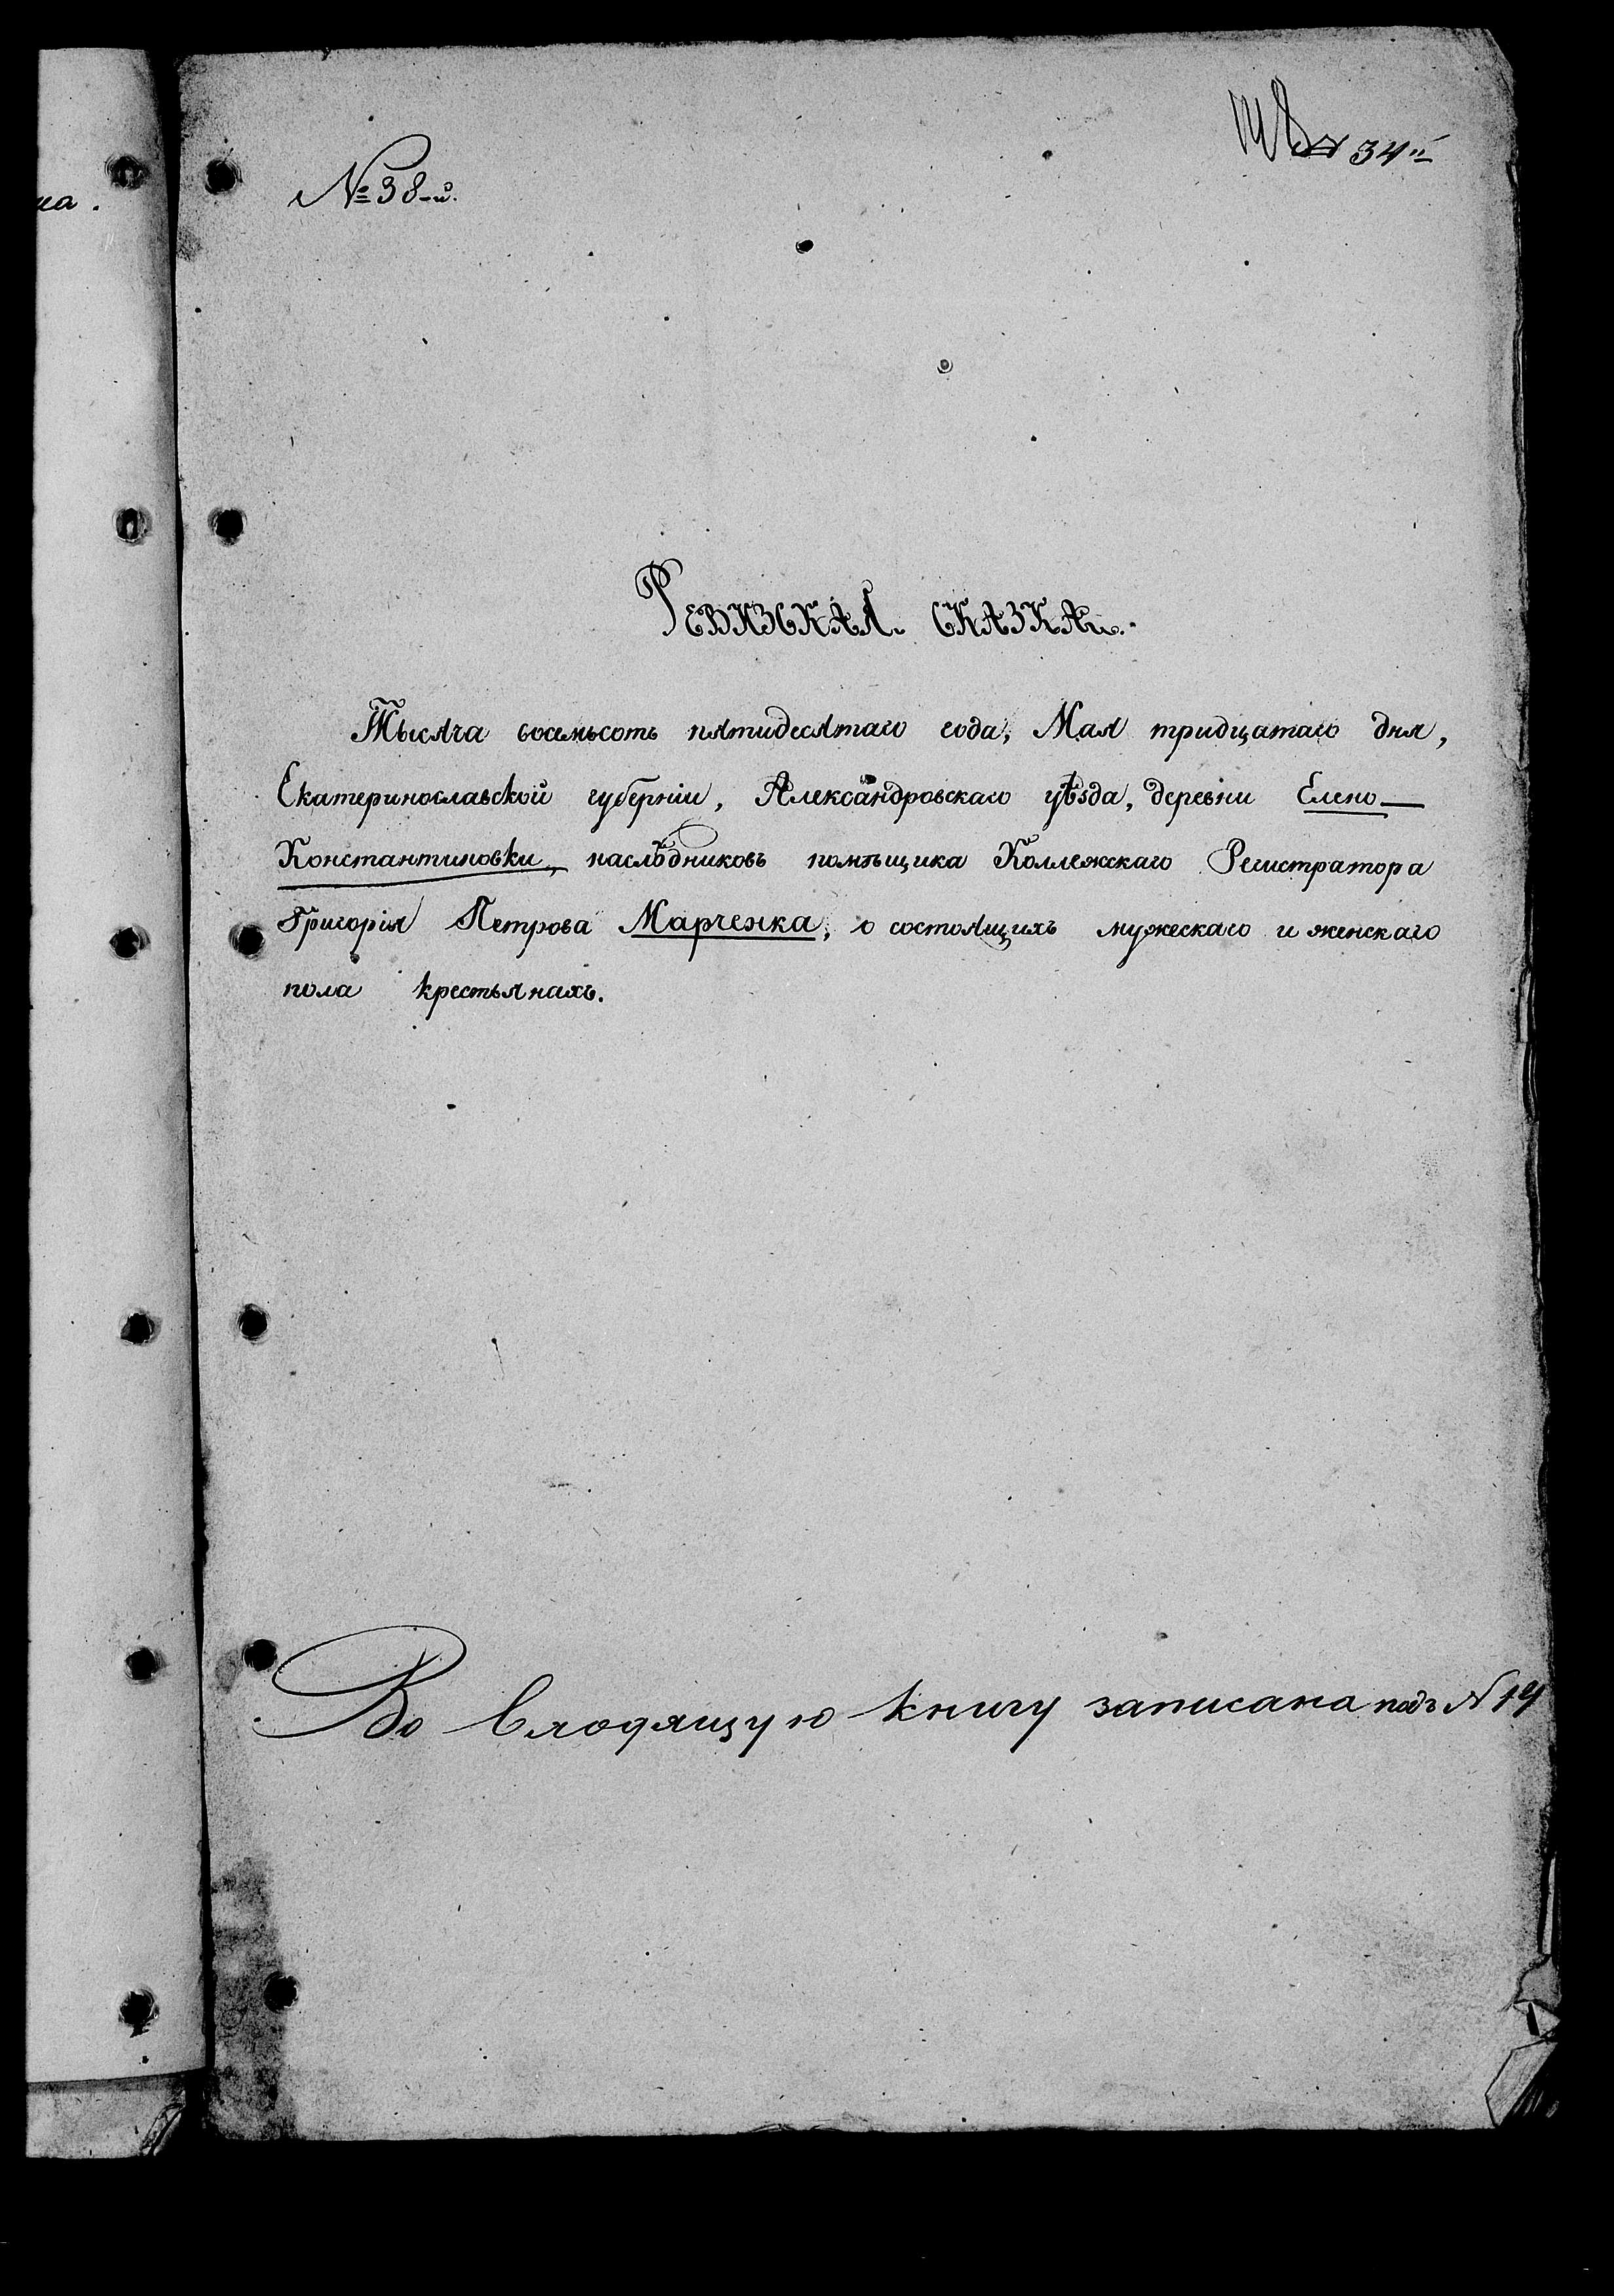 ка.
№ 38-й.
34й
Ревизская сказка.
Тысяча восемьсотъ пятидесятаго года, Мая тридцатаго дня,
Екатеринославской губерніи, Александровскаго уѣзда, деревни Елено-
Константиновки, наслѣдниковъ помѣщика Коллежскаго Регистратора
Григорія Петрова Марченка, о состоящихъ мужескаго и женскаго
пола крестьянахъ.
Во входящую книгу записана подъ N 19